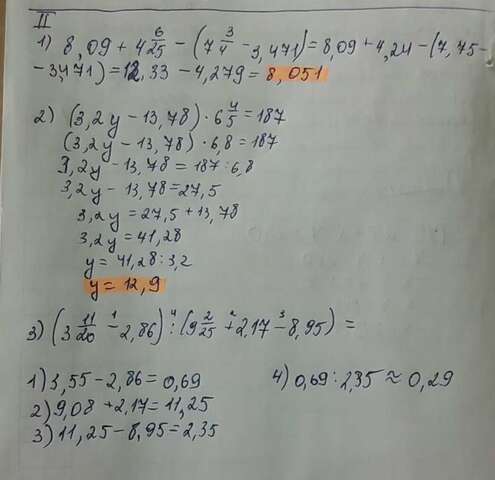 II
1) 8,09 + 4 6/25 - (7 3/4 - 3,471) = 8,09 + 4,24 - (7,75 -
- 3,471) = 12,33 - 4,279 = 8,051
2) (3,2y - 13,78) · 6 4/5 = 187
(3,2y - 13,78) · 6,8 = 187
3,2y - 13,78 = 187 : 6,8
3,2y - 13,78 = 27,5
3,2y = 27,5 + 13,78
3,2y = 41,28
y = 41,28 : 3,2
y = 12,9
3) (3 11/20 -¹ 2,86) :⁴ (9 2/25 +² 2,17 -³ 8,95) =
1) 3,55 - 2,86 = 0,69 4) 0,69 : 2,35 ≈ 0,29
2) 9,08 + 2,17 = 11,25
3) 11,25 - 8,95 = 2,35